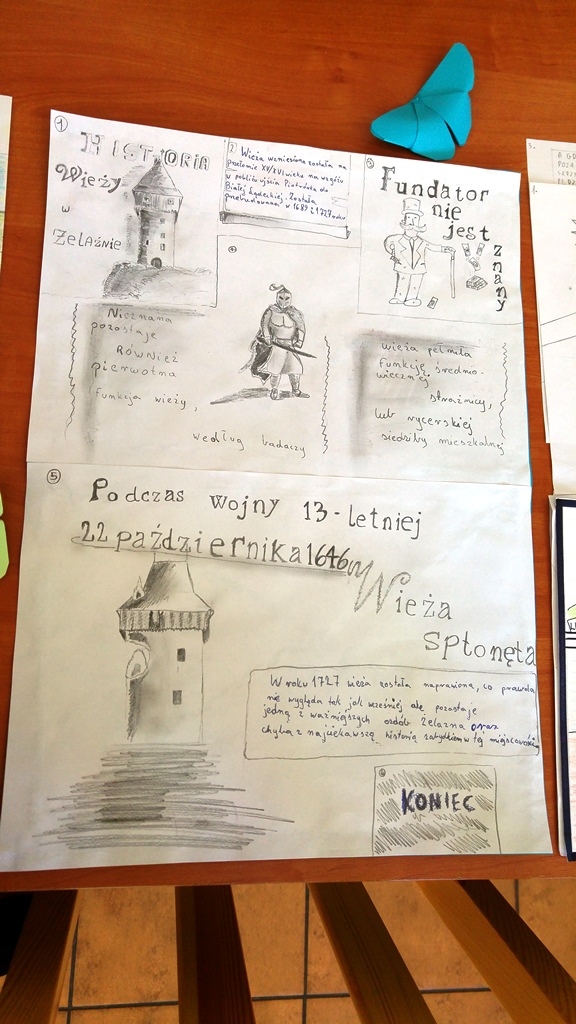 1
HISTORIA
Wieży
w
Żelaźnie
2 Wieża wzniesiona została na
przełomie XV/XVI wieku na wzgórzu
w pobliżu ujścia Piotrówka do
Białej Lądeckiej. Została
przebudowana w 1689 i 1727 roku
3
Fundator
nie
jest
znany
4
Nieznana
pozostaje
RÓWNIEŻ
pierwotna
funkcja wieży,
według badaczy
wieża pełniła
Funkcję średnio-
wiecznej
strażnicy,
lub rycerskiej
siedziby mieszkalnej
5
Podczas wojny 13-letniej
22 października 1646
Wieża
spłonęta
W roku 1727 wieża została naprawiona, co prawda
nie wygląda tak jak wcześniej ale pozostaje
jedną z ważniejszych ozdób Żelazna oraz
chyba z najciekawszą historią zabytkiem w tej miejscowości
6
KONIEC
3.
1.